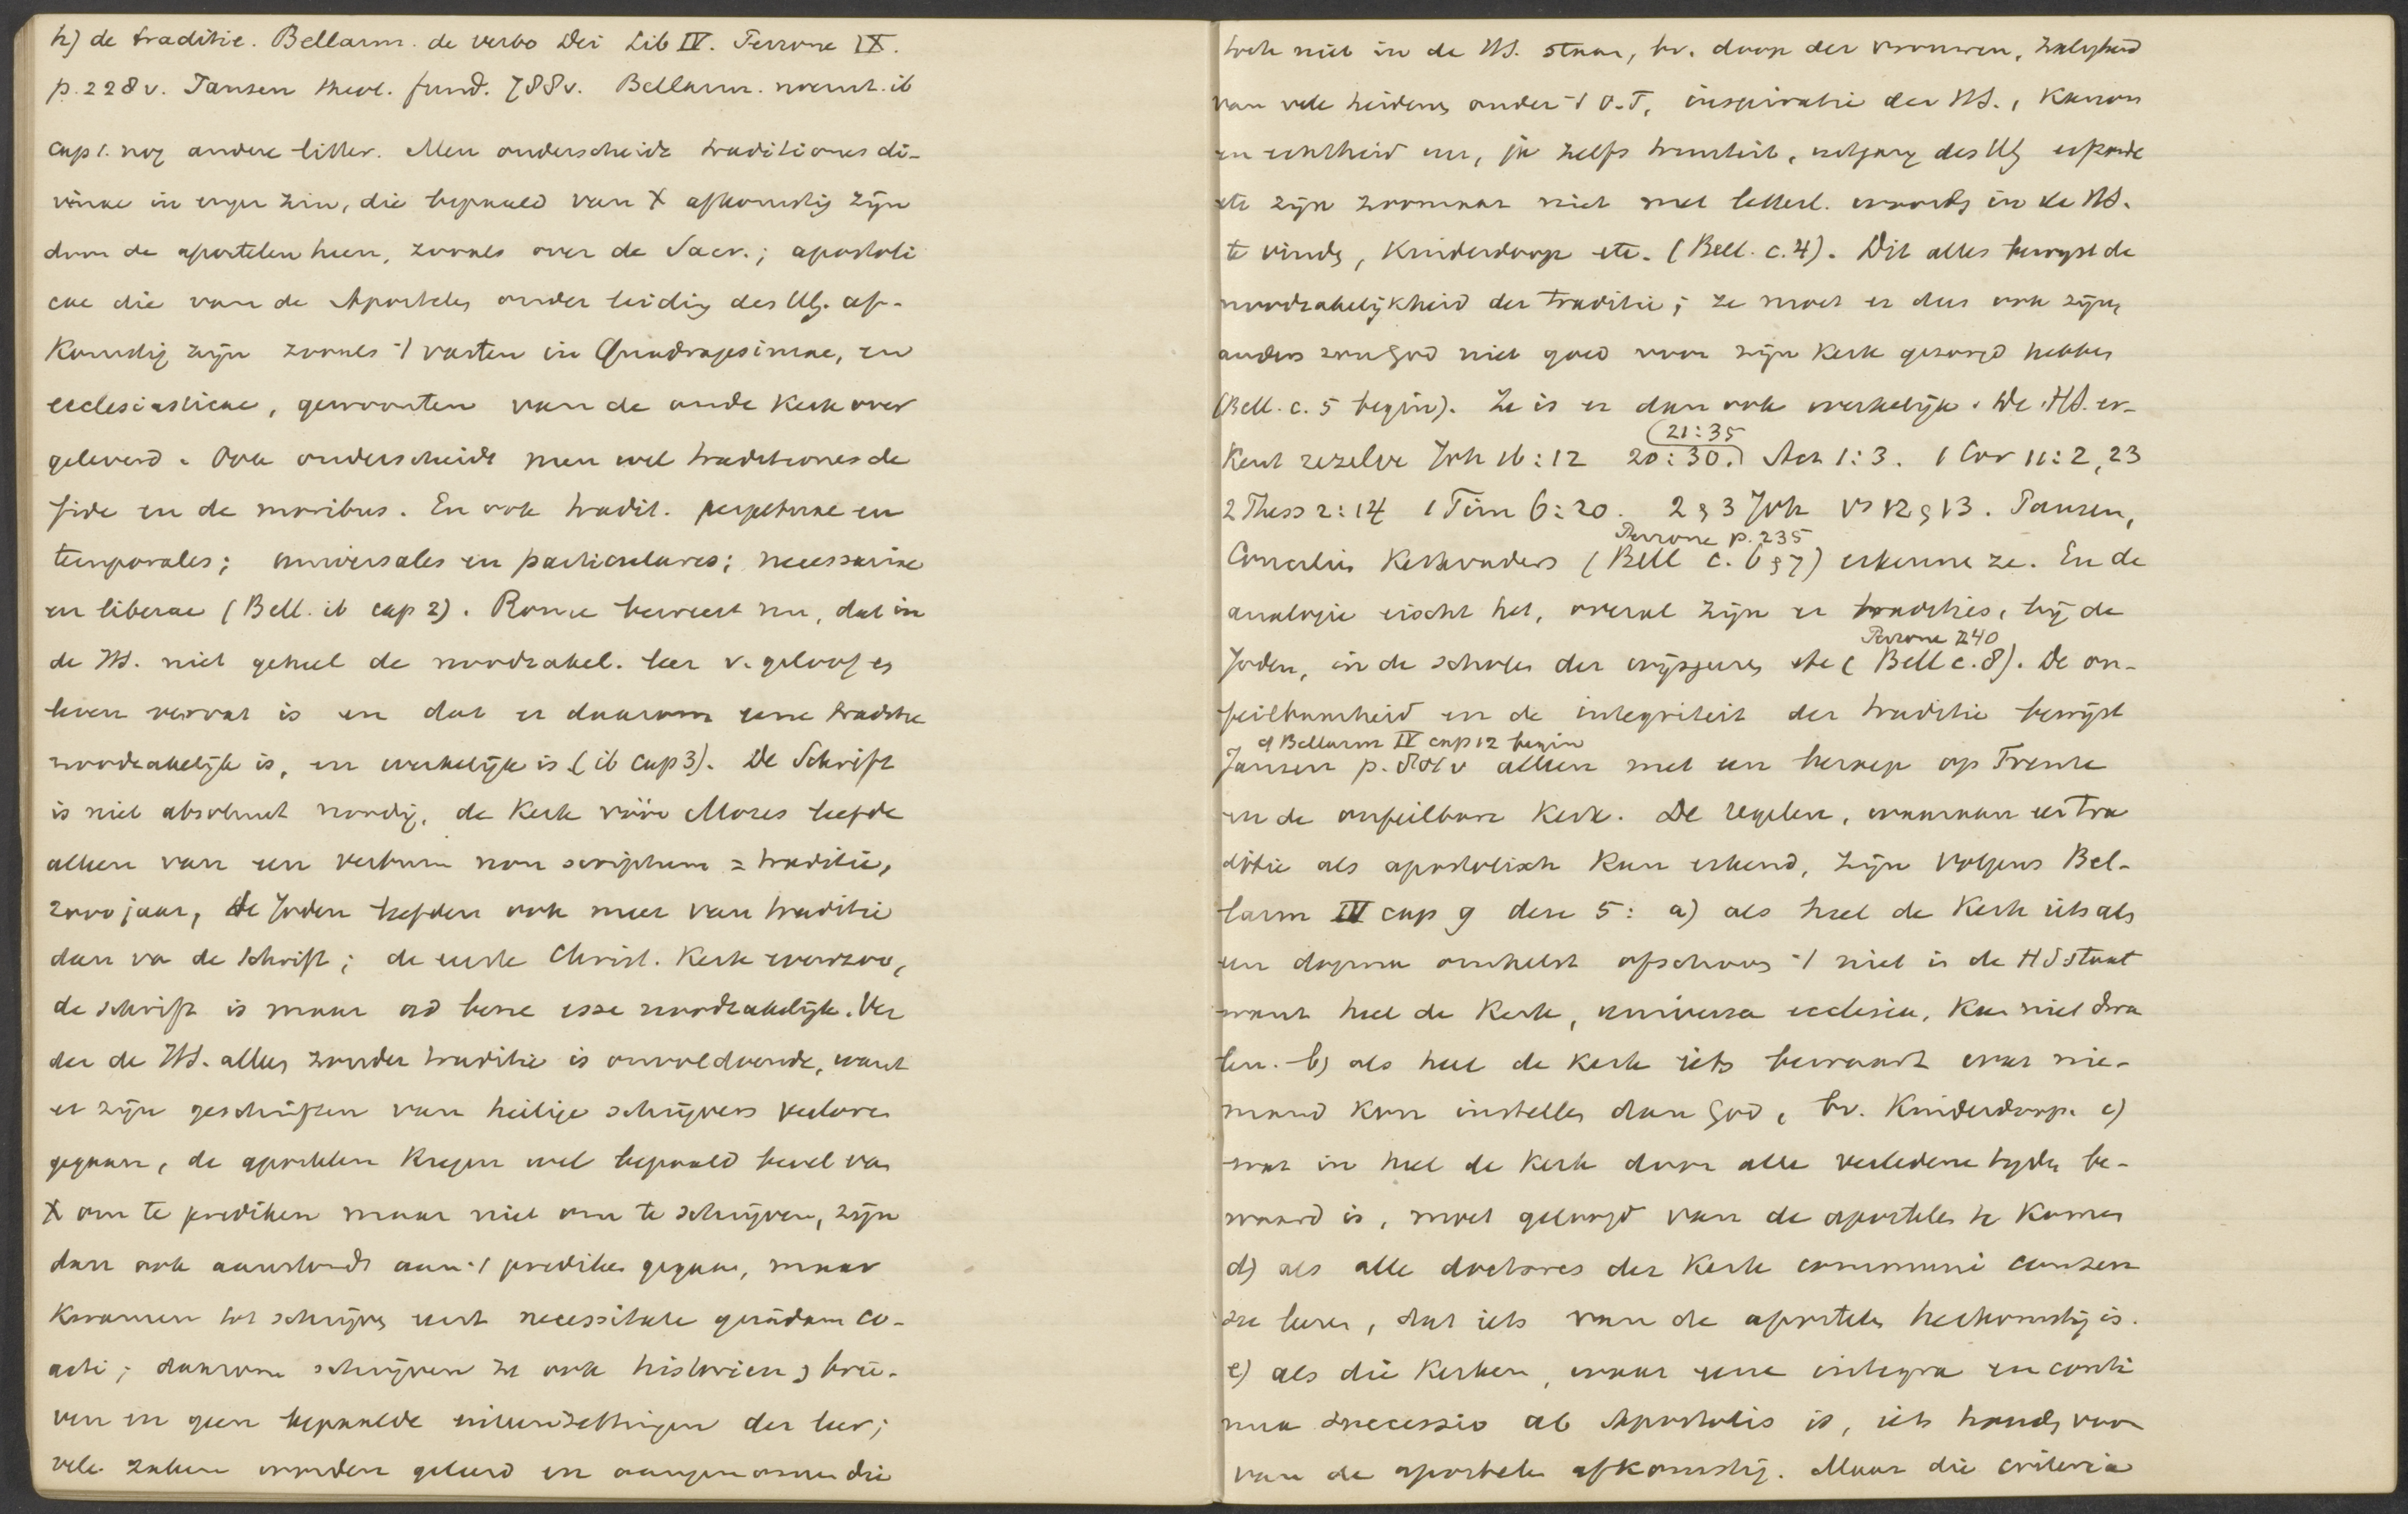 h) de traditie. Bellarm. de verbo Dei Lib IV. Perrone IX.
p. 228 v. Jansen theol. fund. 788 v. Bellarm. noemt ib
cap 1. nog andere litter. Men onderscheidt traditiones di-
vinae in enger zin, die bepaald van X afkomstig zijn
door de apostelen heen, zooals over de Sacr.; apostoli
cae die van de Apostelen onder leiding des Hg. af-
komstig zijn zooals 't vasten in Quadragesimae, en
ecclesiasticae, gewoonten van de oude kerk over
geleverd. Ook onderscheidt men wel traditiones de
fide en de moribus. En ook tradit. perpetuae en
temporales; universales en particulares; necessariae
en liberae (Bell. ib cap 2). Rome beweert nu, dat in
de HS. niet geheel de noodzakel. leer v. geloof en
leven vervat is en dat er daarom eene traditie
noodzakelijk is, en werkelijk is (ib cap 3). De Schrift
is niet absoluut noodig, de kerk vóór Mozes leefde
alleen van een verbum non scriptum = traditie,
2000 jaar, de Joden leefden ook meer van traditie
dan va de Schrift; de eerste Christ. Kerk evenzoo,
de schrift is maar ad bene esse noodzakelijk. Ver
der de HS. alleen zonder traditie is onvoldoende, want
er zijn geschriften van heilige schrijvers verloren
gegaan, de apostelen kregen wel bepaald bevel van
X om te prediken maar niet om te schrijven, zijn
dan ook aanstonds aan 't prediken gegaan, maar
kwamen tot schrijven eerst necessitate quadam co-
acti; daarom schrijven ze ook historien & brie-
ven en geen bepaalde uiteenzettingen der leer;
vele zaken worden geleerd en aangenomen die
toch niet in de HS. staan, bv. doop der vrouwen, zaligheid
van vele heidenen onder 't O.T, inspiratie der HS., Kanon
en echtheid enz, ja zelfs triniteit, uitgang des Hg erfzonde
etc zijn zoomaar niet met letterl. woorden in de HS.
te vinden, Kinderdoop etc. (Bell. c. 4). Dit alles bewijst de
noodzakelijkheid der traditie; ze moet er dus ook zijn,
anders zou God niet goed voor zijn kerk gezorgd hebben
(Bell. c. 5 begin). Ze is er dan ook werkelijk. De HS. er-
21:35
kent zezelve Joh 16:12 20:30. Act 1:3. 1 Cor 11:2, 23
2 Thess 2:14 1 Tim 6:20. 2 & 3 Joh vs 12 & 13. Jansen,
Perrone p. 235
Concilien Kerkvaders (Bell c. 6 & 7) erkenne ze. En de
analogie eischt het, overal zijn er tradities, bij de
Perrone 240
Joden, in de scholen der wijsgeeren etc (Bell c. 8). De on-
feilbaarheid en de integriteit der traditie bewijst
cf Bellarm IV cap 12 begin
Jansen p. 801 v alleen met een beroep op Trente
en de onfeilbare Kerk. De regelen, waaraan een tra
ditie als apostolisch kan erkend, zijn volgens Bel-
larm IV cap 9 deze 5: a) als heel de Kerk iets als
een dogma omhelst ofschoon 't niet in de HS staat
want heel de Kerk, universa ecclesia, kan niet dwa
len. b) als heel de kerk iets bewaart waar nie-
mand kon instellen dan God, bv. Kinderdoop. c)
wat in heel de kerk door alle verledene tijden be-
waard is, moet geloofd van de apostelen te komen
d) als alle doctores der Kerk communi consen
su leeren, dat iets van de apostelen herkomstig is.
e) als die kerken, waar eene integra en conti
nua successio ab Apostolis is, iets houden voor
van de apostelen afkomstig. Maar die criteria